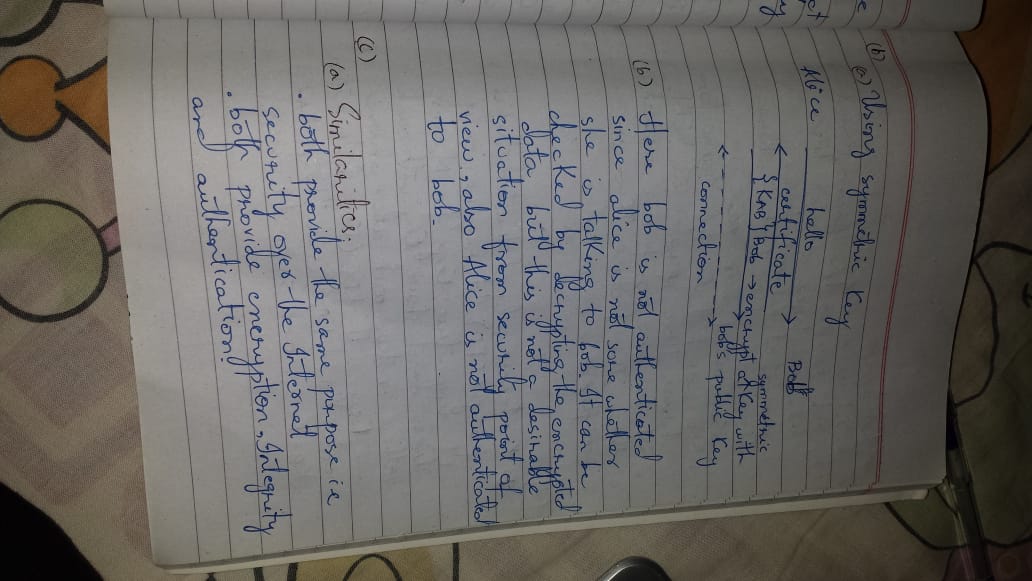 (b)
(a) Using symmetric Key
Alice hello Bob
certificate
{KAB}Bob → encrypt symmetric Key with bob's public Key
connection
(b) Here bob is not authenticated
since alice is not sure whether
she is talking to bob. It can be
checked by decrypting the encrypted
data but this is not a desirable
situation from security point of
view, also Alice is not authenticated
to bob.
(c)
(a) Similarities:
• both provide the same purpose ie
security over the Internet
• both provide encryption, Integrity
and authentication.